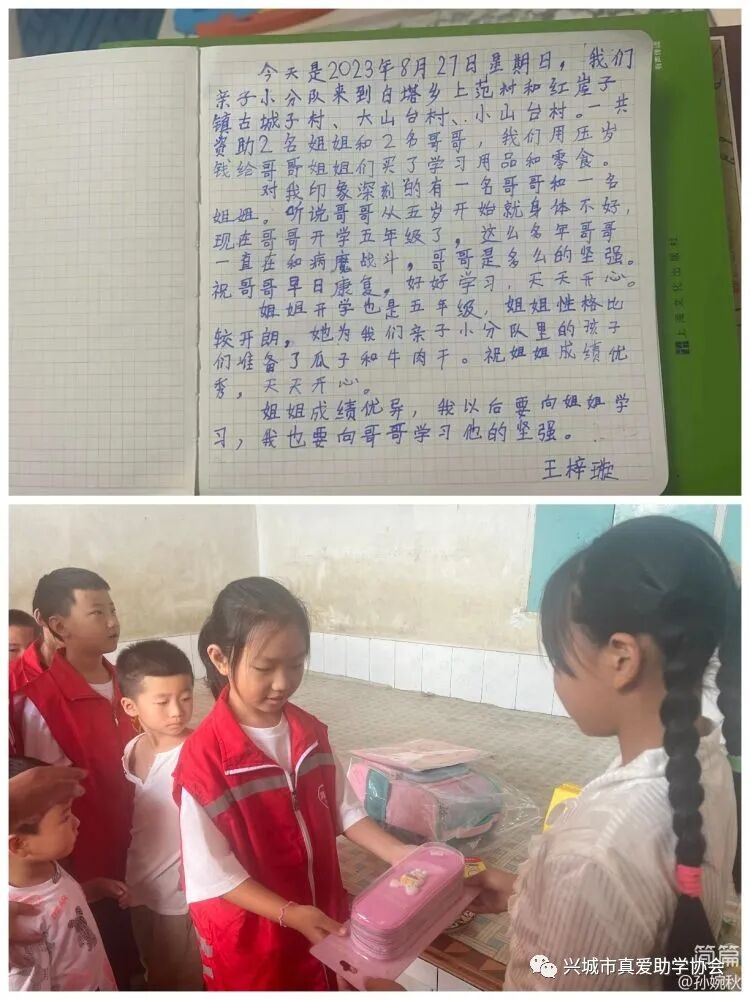 今天是2023年8月27日星期日，我们
亲子小分队来到白塔乡上范村和红崖子
镇古城子村、大山台村、小山台村。一共
资助2名姐姐和2名哥哥，我们用压岁
钱给哥哥姐姐们买了学习用品和零食。
对我印象深刻的有一名哥哥和一名
姐姐。听说哥哥从五岁开始就身体不好，
现在哥哥开学五年级了，这么多年哥哥
一直在和病魔战斗，哥哥是多么的坚强。
祝哥哥早日康复，好好学习，天天开心。
姐姐开学也是五年级，姐姐性格比
较开朗，她为我们亲子小分队里的孩子
们准备了瓜子和牛肉干。祝姐姐成绩优
秀，天天开心。
姐姐成绩优异，我以后要向姐姐学
习，我也要向哥哥学习他的坚强。
王梓璇
上海文化出版社
简篇
兴城市真爱助学协会
@孙婉秋